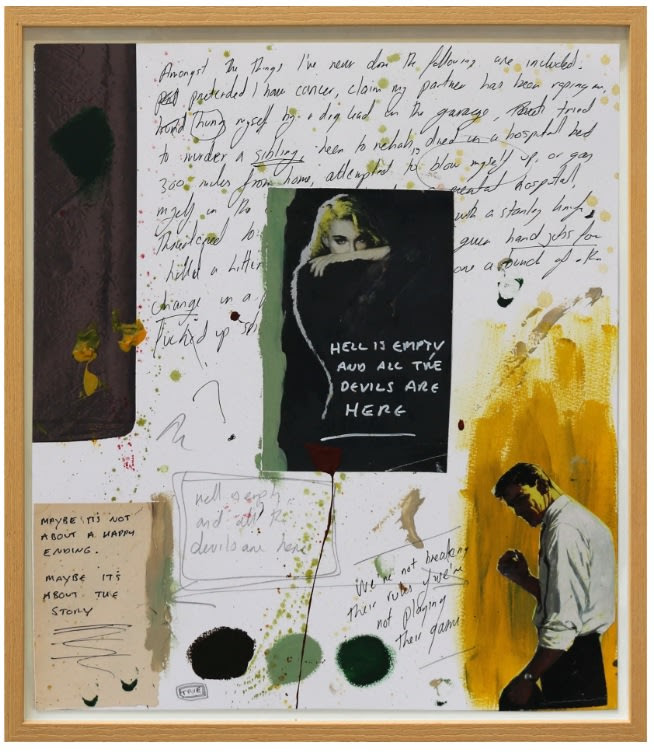 Amongst the things I've never done the following are included.
pretended I have cancer, claim my partner has been raping me,
hung myself by a dog lead in the garage, tried
to murder a sibling, been to rehab, died in a hospital bed
300 miles from home, attempted to blow myself up, or gas
myself in the mental hospital,
Threatened to with a stanley knife,
killed a kitten given hand jobs for
change in a one a round of
fucked up sh
HELL IS EMPTY
AND ALL THE
DEVILS ARE
HERE
Hell is empty
and all the
devils are here
MAYBE IT'S NOT
ABOUT A HAPPY
ENDING.
MAYBE IT'S
ABOUT THE
STORY
We're not breaking
their rules if we're
not playing
their game
TRUE